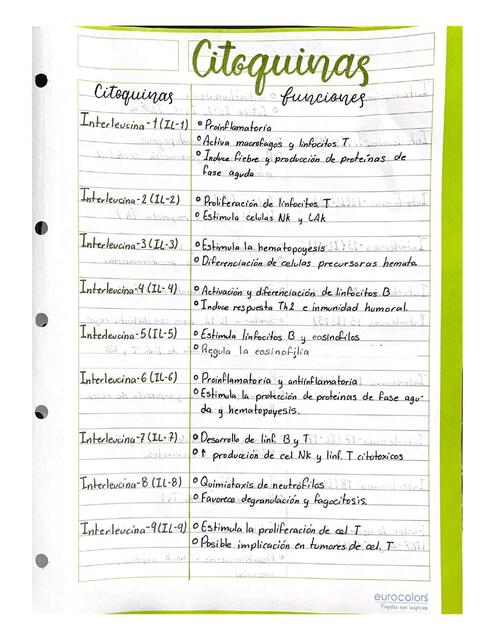 Citoquinas
Citoquinas funciones
Interleucina-1 (IL-1) ° Proinflamatoria
° Activa macrofagos y linfocitos T.
° Induce fiebre y producción de proteínas de
fase aguda
Interleucina-2 (IL-2) ° Proliferación de linfocitos T
° Estimula celulas NK y LAK
Interleucina-3 (IL-3) ° Estimula la hematopoyesis
° Diferenciación de celulas precursoras hemata.
Interleucina-4 (IL-4) ° Activación y diferenciación de linfocitos B
° Induce respuesta Th2 e inmunidad humoral.
Interleucina-5 (IL-5) ° Estimula linfocitos B y eosinofilos
° Regula la eosinofilia
Interleucina-6 (IL-6) ° Proinflamatoria y antiinflamatoria
° Estimula la protección de proteinas de fase agu-
da y hematopoyesis.
Interleucina-7 (IL-7) ° Desarrollo de linf. B y T
° ↑ producción de cel NK y linf. T citotoxicos
Interleucina-8 (IL-8) ° Quimiotaxis de neutrófilos
° Favorece degranulación y fagocitosis.
Interleucina-9 (IL-9) ° Estimula la proliferación de cel T
° Posible implicación en tumores de cel. T
eurocolors
Papeles que inspiran